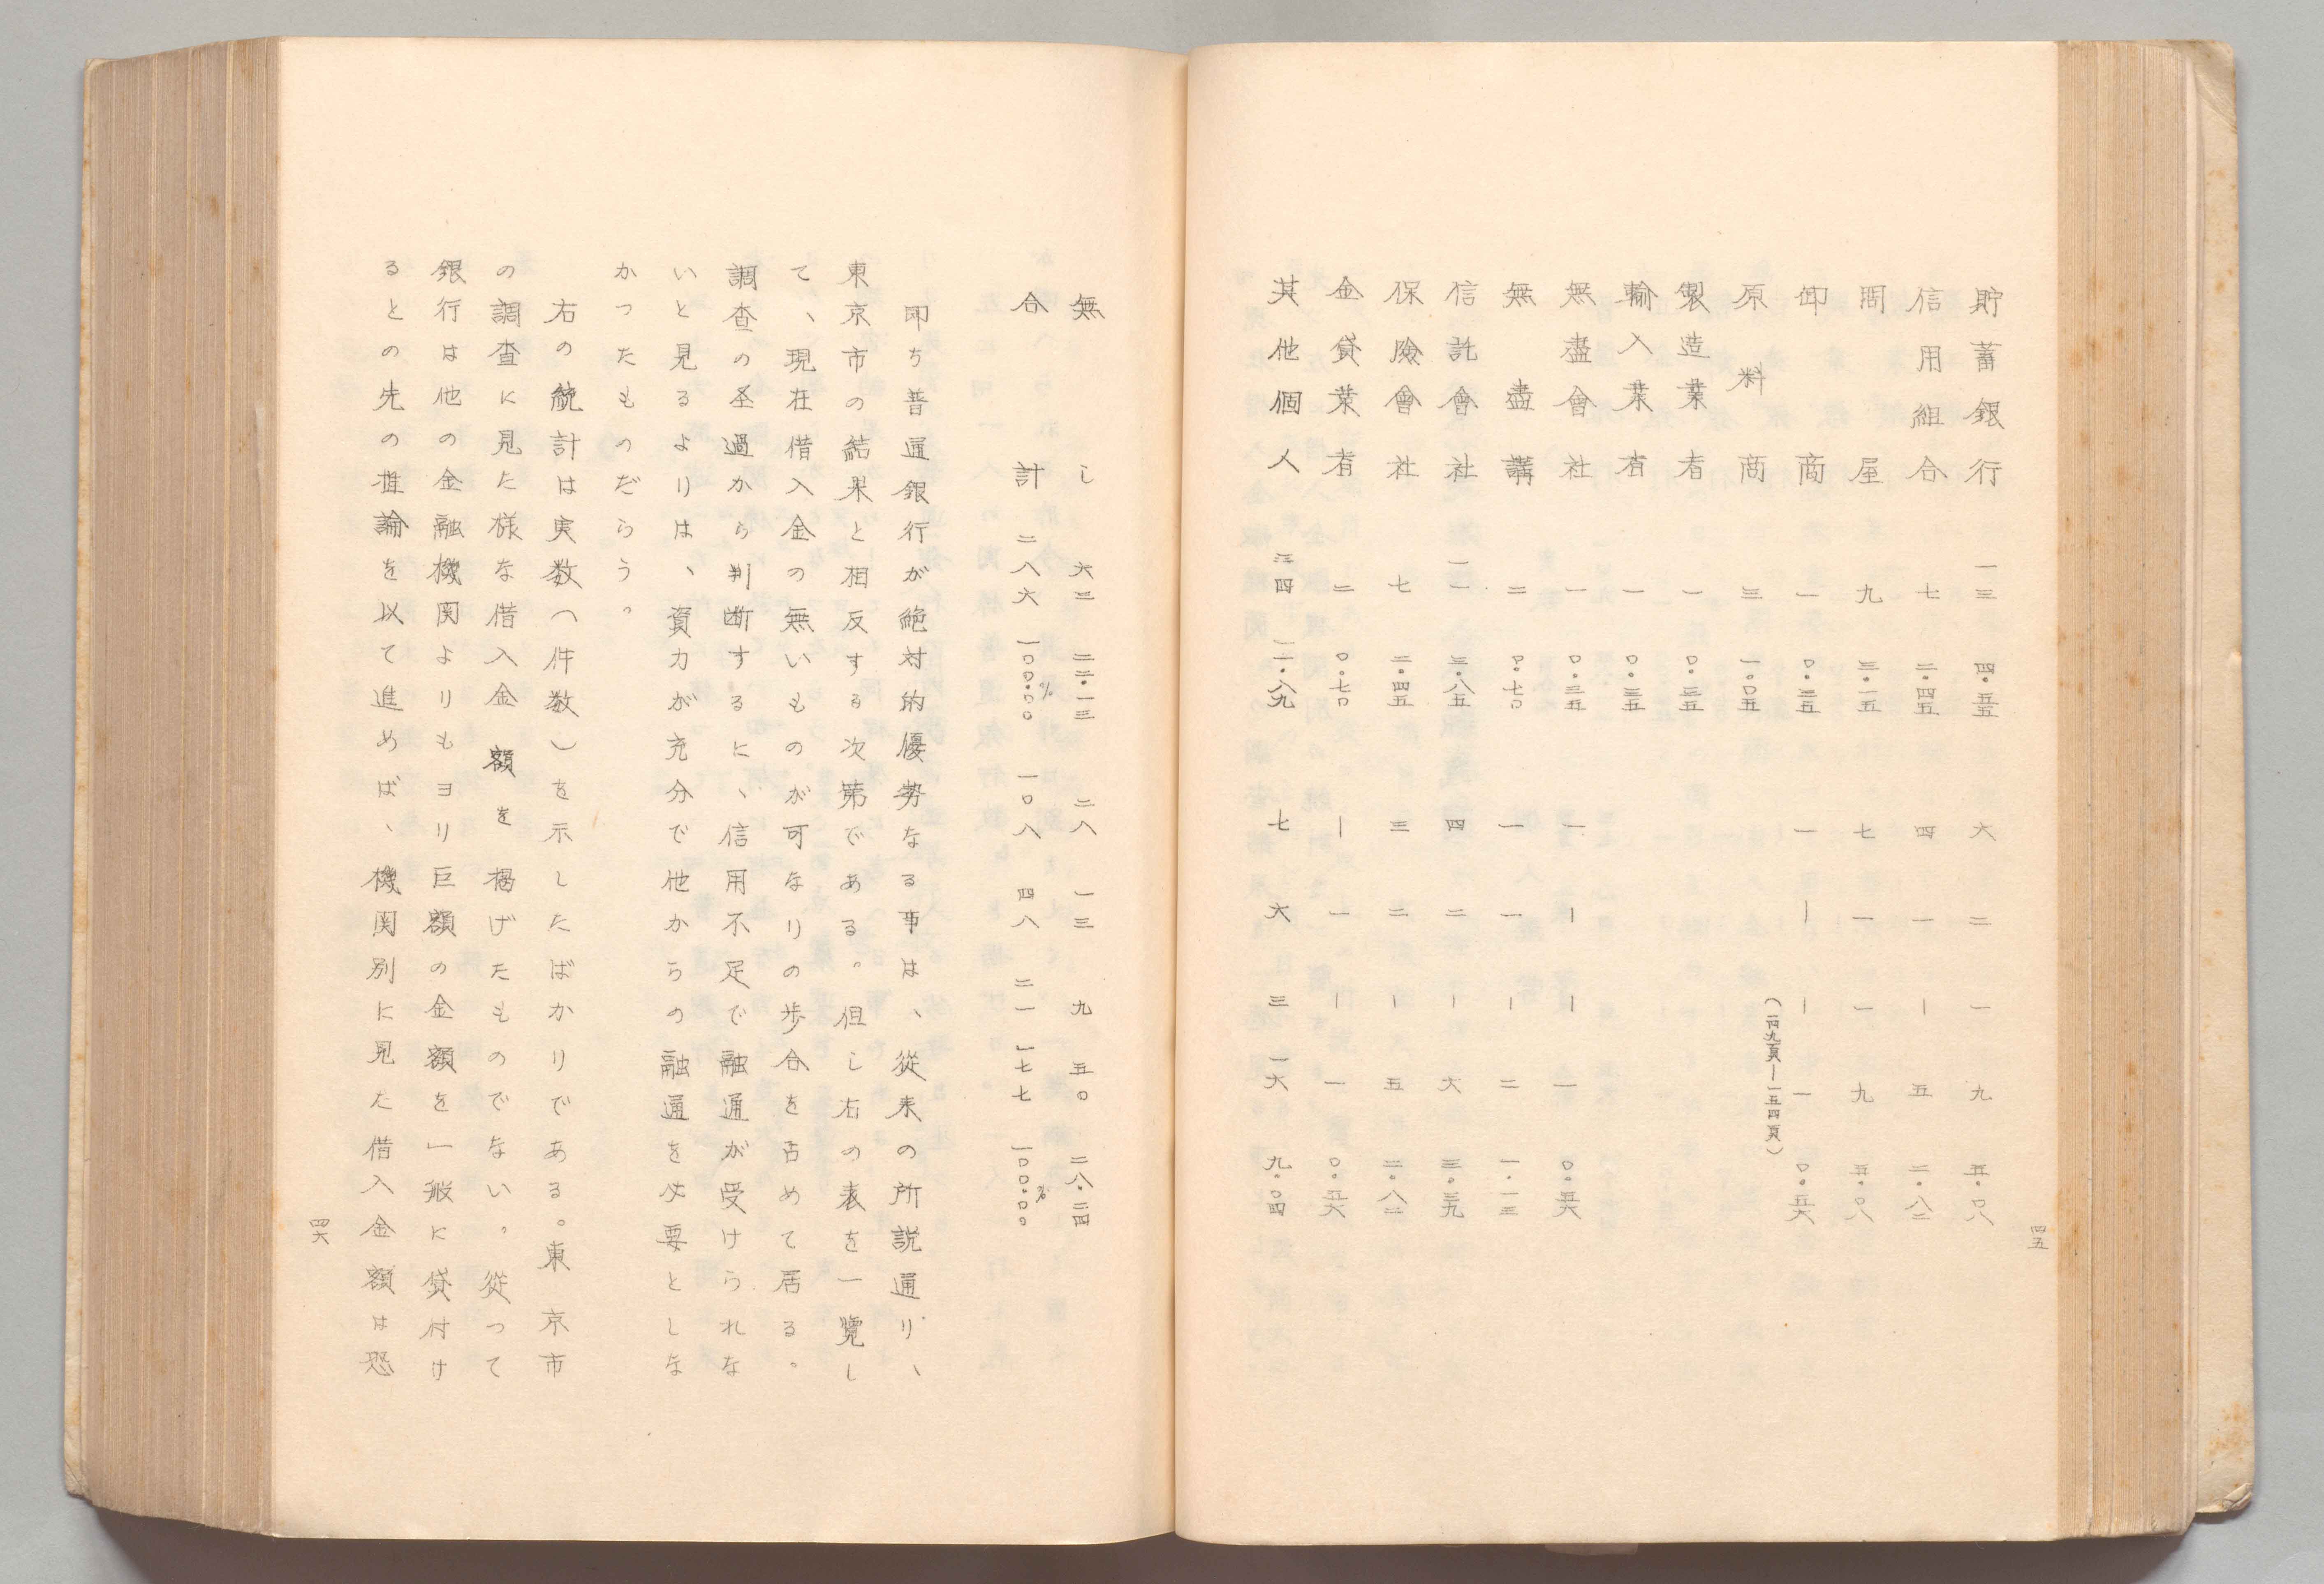 貯蓄銀行 一三 四・五五 六 二 一 九 五・〇八
信用組合 七 二・四五 四 一 ー 五 二・八二
問屋 九 三・一五 七 一 一 九 五・〇八
卸商 一 〇・三五 一 ー ー 一 〇・五六
原料商 三 一・〇五
(一四九頁ー一五四頁)
製造業者 一 〇・三五
輸入業者 一 〇・三五
無盡會社 一 〇・三五 一 ー ー 一 〇・五六
無盡講 二 〇・七〇 一 一 ー 二 一・一三
信託會社 一一 三・八五 四 二 ー 六 三・三九
保險會社 七 二・四五 三 二 ー 五 二・八二
金貸業者 二 〇・七〇 ー 一 ー 一 〇・五六
其他個人 三四 一一・八九 七 六 三 一六 九・〇四
四五
無し 六三 二二・一三 二八 一三 九 五〇 二八・二四
合計 二八六 一〇〇・〇〇% 一〇八 四八 二一 一七七 一〇〇・〇〇%
即ち普通銀行が絶対的優勢なる事は、從来の所説通り、
東京市の結果と相反する次第である。但し右の表を一覧し
て、現在借入金の無いものが可なりの歩合を占めて居る。
調査の圣過から判断するに、信用不足で融通が受けられな
いと見るよりは、資力が充分で他からの融通を必要としな
かつたものだらう。
右の統計は実数(件数)を示したばかりである。東京市
の調査に見た様な借入金額を揭げたものでない。從って
銀行は他の金融機関よりもヨリ巨額の金額を一般に貸付け
るとの先の推論を以て進めば、機関別に見た借入金額は恐
四六